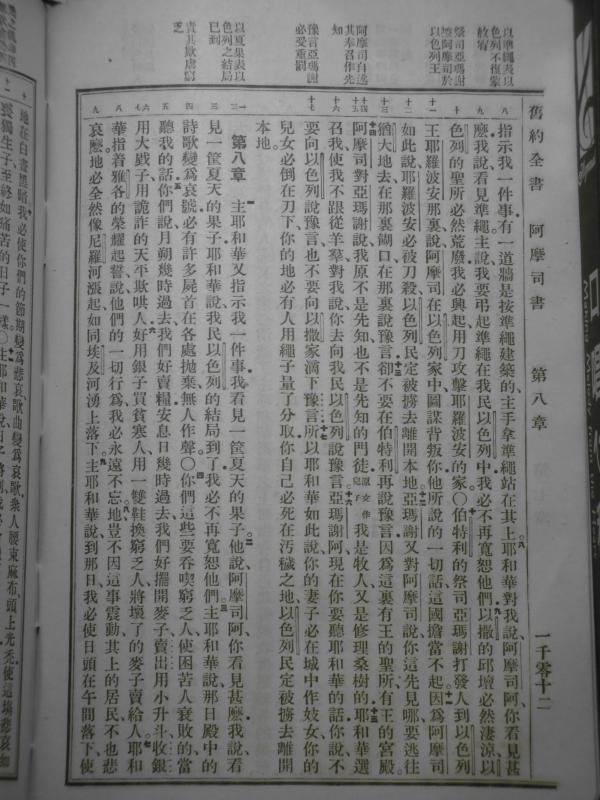 舊約全書 阿摩司書 第八章 一千零十二
以準繩表以
色列不復蒙
赦宥
祭司亞瑪謝
譖阿摩司於
以色列王
阿摩司自述
其奉召作先
知
豫言亞瑪謝
必受重罰
以夏果表以
色列之結局
已到
責其欺虐窮
乏
指示我一件事有一道牆是按準繩建築的主手拿準繩站在其上耶和華對我說阿摩司阿你看見甚
麼我說看見準繩主說我要弔起準繩在我民以色列中我必不再寬恕他們以撒的邱壇必然淒涼以
色列的聖所必然荒廢我必興起用刀攻擊耶羅波安的家〇伯特利的祭司亞瑪謝打發人到以色列
王耶羅波安那裏說阿摩司在以色列家中圖謀背叛你他所說的一切話這國擔當不起因爲阿摩司
如此說耶羅波安必被刀殺以色列民定被擄去離開本地亞瑪謝又對阿摩司說你這先見哪要逃往
猶大地去在那裏餬口在那裏說豫言卻不要在伯特利再說豫言因爲這裏有王的聖所有王的宮殿
阿摩司對亞瑪謝說我原不是先知也不是先知的門徒原文作兒子我是牧人又是修理桑樹的耶和華選
召我使我不跟從羊羣對我說你去向我民以色列說豫言亞瑪謝阿現在你要聽耶和華的話你說不
要向以色列說豫言也不要向以撒家滴下豫言所以耶和華如此說你的妻子必在城中作妓女你的
兒女必倒在刀下你的地必有人用繩子量了分取你自己必死在汚穢之地以色列民定被擄去離開
本地
第八章 主耶和華又指示我一件事我看見一筐夏天的果子他說阿摩司阿你看見甚麼我說看
見一筐夏天的果子耶和華說我民以色列的結局到了我必不再寬恕他們主耶和華說那日殿中的
詩歌變爲哀號必有許多屍首在各處拋棄無人作聲〇你們這些要吞喫窮乏人使困苦人衰敗的當
聽我的話你們說月朔幾時過去我們好賣糧安息日幾時過去我們好擺開麥子賣出用小升斗收銀
用大戥子用詭詐的天平欺哄人好用銀子買貧寒人用一雙鞋換窮乏人將壞了的麥子賣給人耶和
華指着雅各的榮耀起誓說他們的一切行爲我必永遠不忘地豈不因這事震動其上的居民不也悲
哀麼地必全然像尼羅河漲起如同埃及河湧上落下主耶和華說到那日我必使日頭在午間落下使
地在白晝黑暗我必使你們的節期變爲悲哀歌曲變爲哀歌衆人腰束麻布頭上光禿使這場悲哀如
喪獨生子至終如痛苦的日子一樣〇主耶和華說日子將到